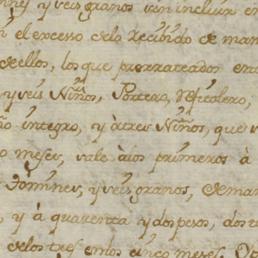 y veis granos ven incluir en
el exceso delo recibido de man
dellos, los que prorrateados entre
y veis Niños, Portero, Refitolero,
ño integro, y à tres Niños, que v
o meses, vale à los primeros à
Domines, y veis granos, de man
, y à quarenta y dos pesos, dos r
delos tres en los cinco meses. Op